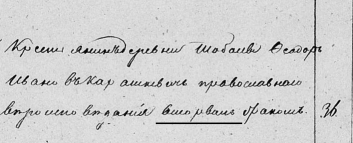 Крестьянинъ деревни Шабаева Ѳеодоръ
Ивановъ Карашкевичъ православнаго
вѣроисповѣданія вторымъ бракомъ. 36